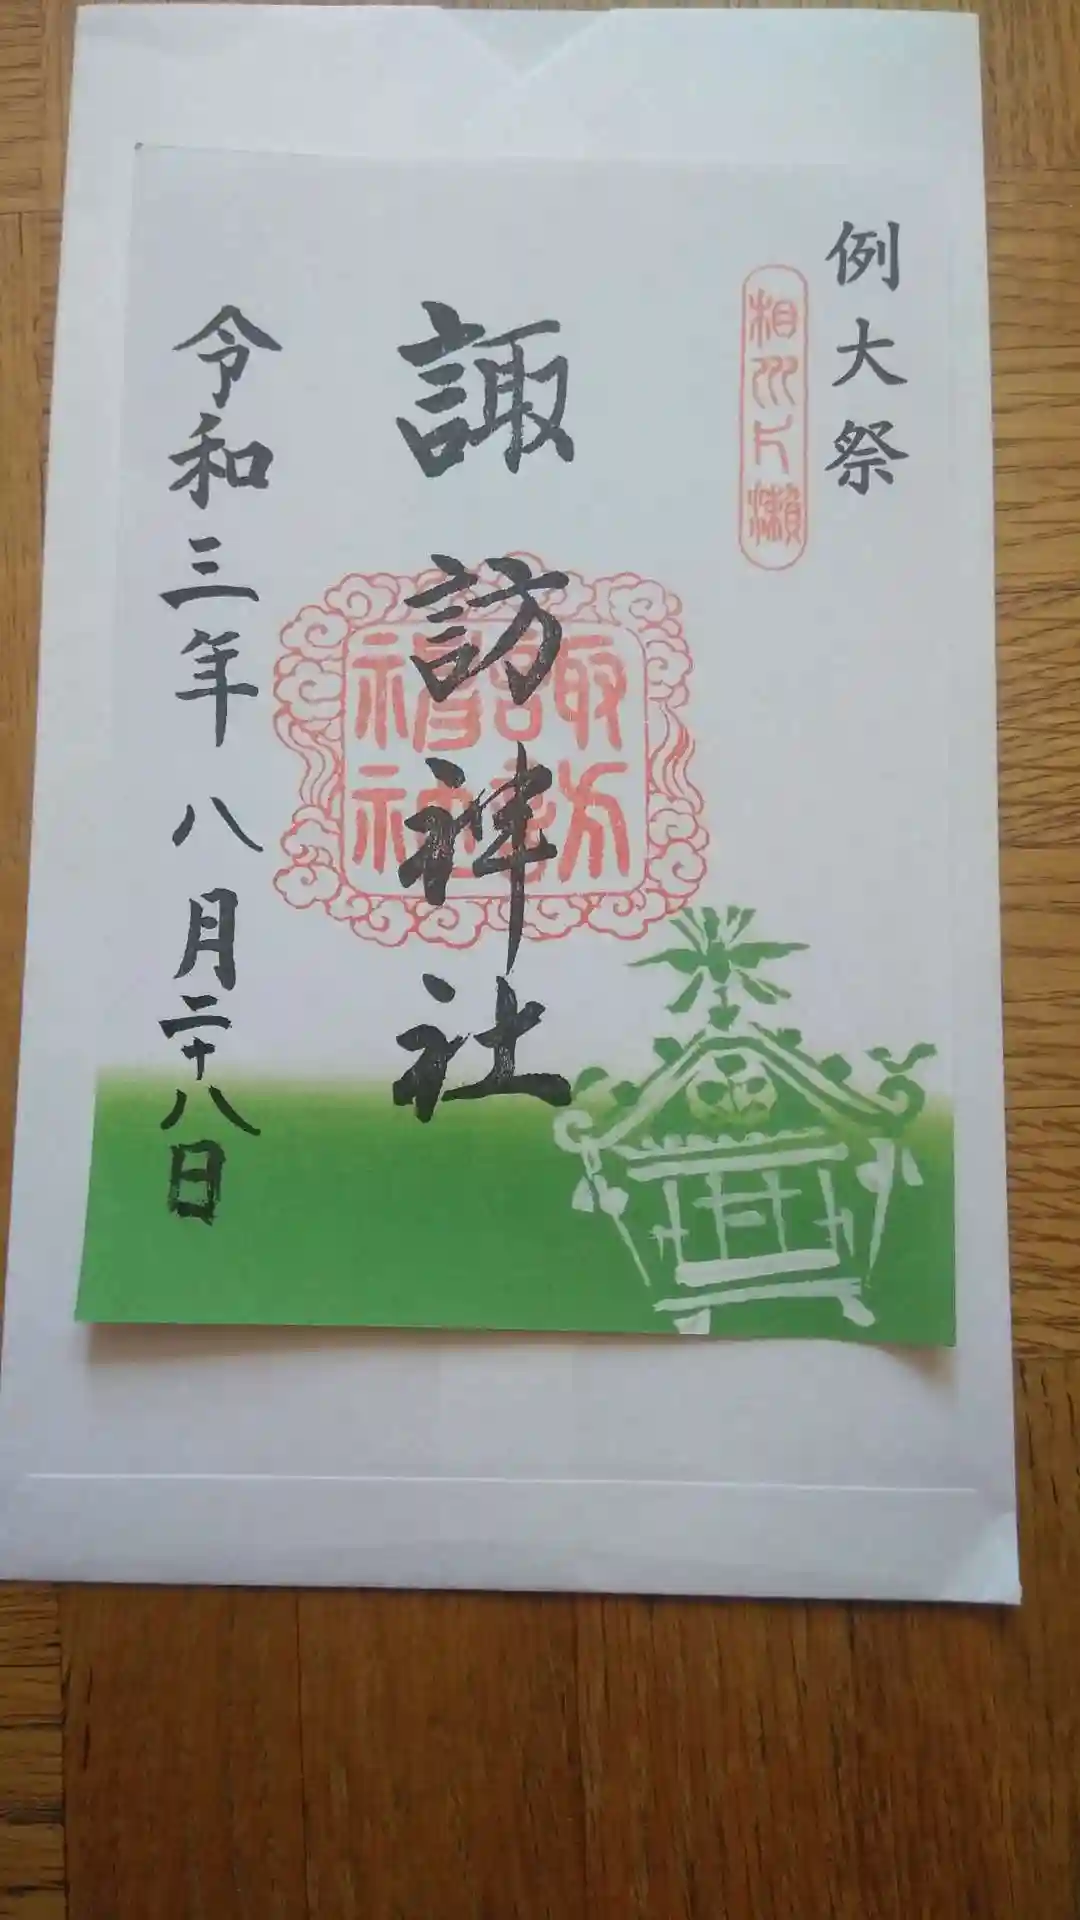 例大祭
相州片瀬
諏訪神社
諏訪神社
令和三年八月二十八日